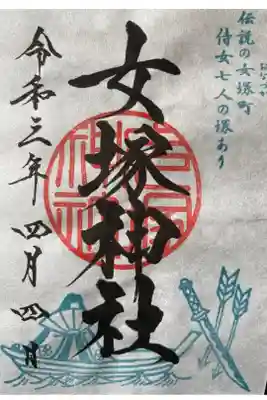 伝説の女塚町
侍女七人の塚あり
女塚神社
令和三年 四月四日